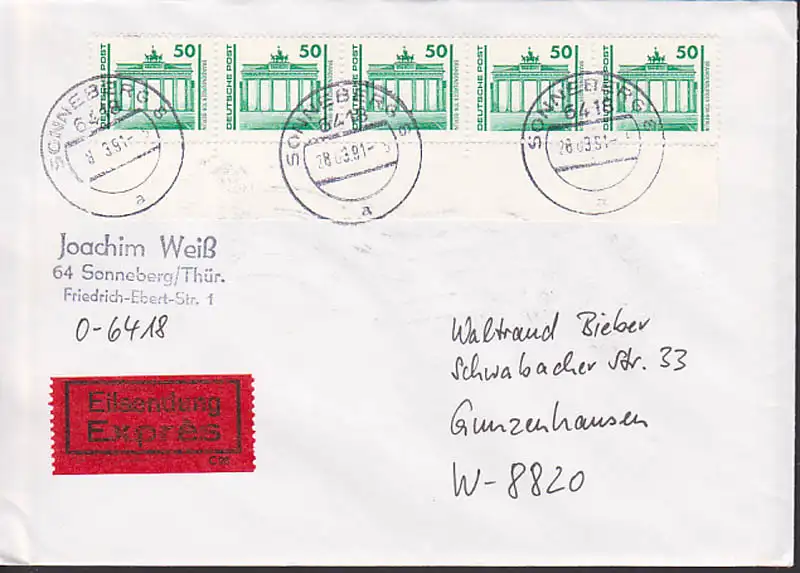 50 50 50 50 50
DEUTSCHE POST DEUTSCHE POST DEUTSCHE POST DEUTSCHE POST DEUTSCHE POST
SONNEBERG 8
6418
3.91-
a
SONNEBERG 8
6418
28.03.91-
a
SONNEBERG 8
6418
28.03.91-
a
Joachim Weiß
64 Sonneberg/Thür.
Friedrich-Ebert-Str. 1
O-6418
Eilsendung
Exprès
Waltraud Bieber
Schwabacher Str. 33
Gunzenhausen
W-8820